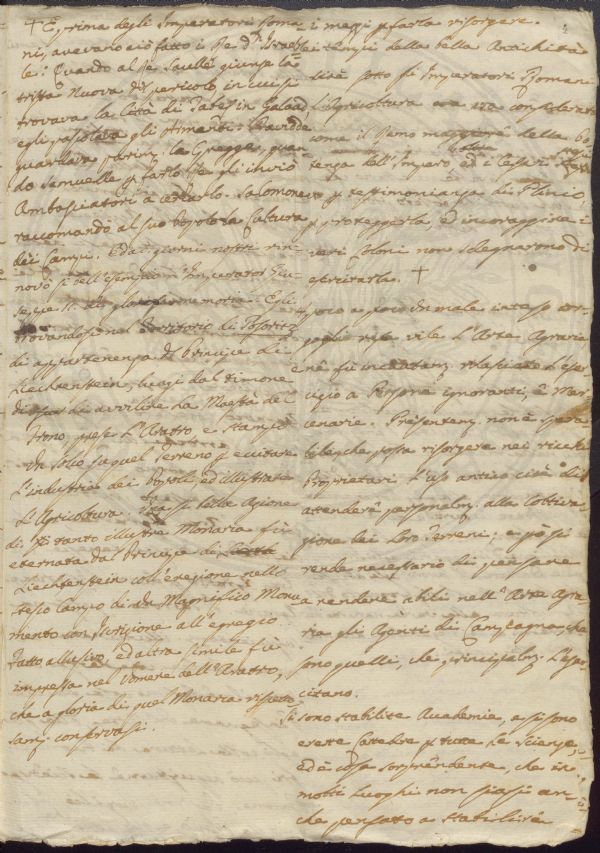 + E prima degli Imperatori Roma-
ni, avevano ciò fatto i Re d'Israel-
le. Quando al Re Saulle giunse la
trista Nuova del pericolo in cui si
trovava la Città di Jabes in Galaad,
egli pascolava gli Armenti. Davidde
guardava parim. le Gregge, quan-
do Samuelle p farlo Re gli inviò
Ambasciatori a cercarlo. Salomone
raccomandò al suo Popolo la Cultura
dei Campi. Ed a giorni nostri rin-
novò sì bell'esempio l'Imperator Giu-
seppe II. di gloriosa memoria. Egli
trovandosi nel Territorio di
di appartenenza del Principe di
Liechtenstein, lungi dal timore
di avvilire la Maestà del
Trono, prese l'Aratro, e stampò
un solco su quel Terreno p eccitare
l'industria dei Popoli, ed illustrare
l'Agricoltura. Una sì bella Azione
di tanto illustre Monarca fù
eternata dal Principe di
Liechtenstein coll'erezione nello
stesso Campo di un Magnifico Monu-
mento con Iscrizione all'egregio
Fatto allusiva, ed altra simile fù
impressa nel Vomere dell'Aratro,
che a gloria di quel Monarca rispetto-
sam. conservasi.
i mezzi p farla risorgere.
Nei tempi della bella Antichità
sotto gli Imperatori Romani
l'Agricoltura era considerata
come il Ramo maggiore della Po-
tenza dell'Impero, ed i Cesari
p testimonianza di Plinio,
p proteggerla, ed incoraggire i
Coloni non sdegnarono di
esercitarla. +
Poco a poco un male inteso or-
goglio rese vile l'Arte Agraria
e ne fù rilasciato l'eser-
cizio a Persone ignoranti, e Mer-
cenarie. Presentem. non è spera-
bile che possa risorgere nei ricchi
Proprietari l'uso antico cioè di
attendere personalm. alla Coltiva-
zione dei loro Terreni; e però si
rende necessario di pensare
a rendere abili nell'Arte Agra-
ria gli Agenti di Campagna, che
sono quelli, che principalm. l'eser-
citano.
Si sono stabilite Accademie, e si sono
erette Cattedre p tutte le Scienze,
ed è cosa sorprendente, che in
molti Luoghi non siasi an-
che pensato a stabilire